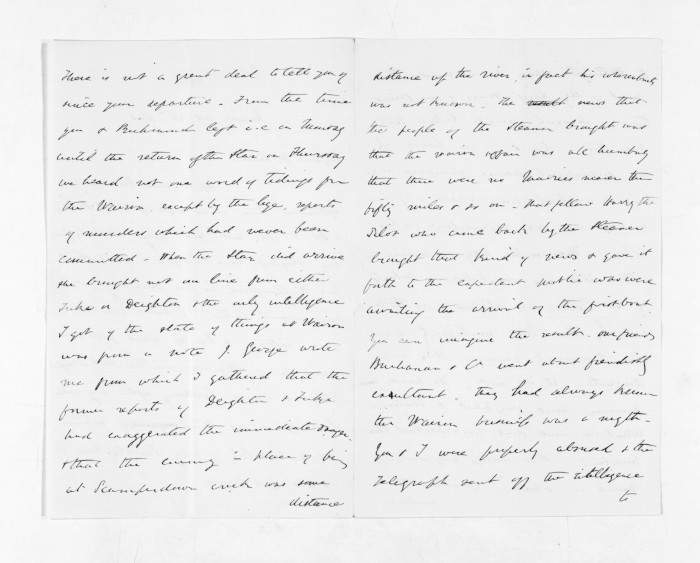 There is not a great deal to tell you of
since your departure - From the time
you & Richmond left i.e. on Monday
until the return of the Star on Thursday
we heard not one word of tidings from
the Wairoa except by the bye, reports
of murders which had never been
committed - When the Star did arrive
she brought not one line from either
Tuke or Deighton & the only intelligence
I got of the state of things at Wairoa
was from a note J. George wrote
me from which I gathered that the
former reports of Deighton & Tuke
had exaggerated the immediate danger,
& that the enemy in place of being
at Scamperdown creek was some
distance
distance up the river, in fact his whereabouts
was not known. The result news that
the people of the Steamer brought was
that the Wairoa affair was all humbug
that there were no Hauhaus nearer than
fifty miles & so on - that fellow Harry the
Pilot who came back by the Steamer
brought that kind of news & gave it
forth to the expectant public who were
awaiting the arrival of the first boat
You can imagine the result. our friends
Buchanan & Co went about fiendishly
exultant. they had always known
the Wairoa business was a myth -
You & I were properly abused & the
Telegraph sent off the intelligence
to